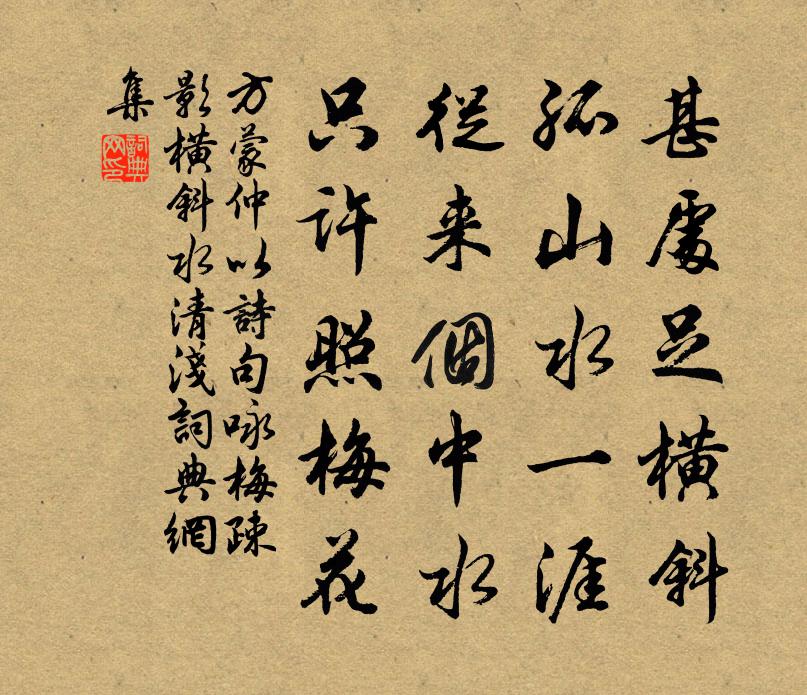 甚處足橫斜
孤山水一涯
從来個中水
只許照梅花
方蒙仲以詩句咏梅疎
影橫斜水清淺詞典網
集
詞典網印